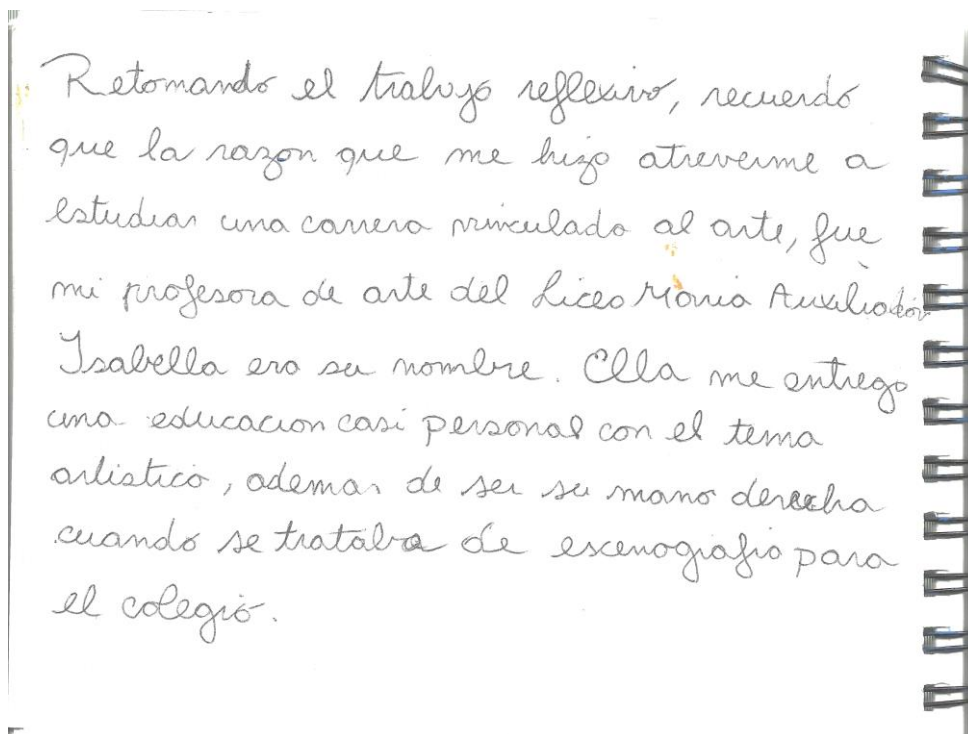 Retomando el trabajo reflexivo, recuerdo
que la razon que me hizo atreverme a
estudiar una carrera vinculado al arte, fue
mi profesora de arte del Liceo Maria Auxiliadora
Isabella era su nombre. Ella me entrego
una educacion casi personal con el tema
artistico, ademas de ser su mano derecha
cuando se trataba de escenografia para
el colegio.